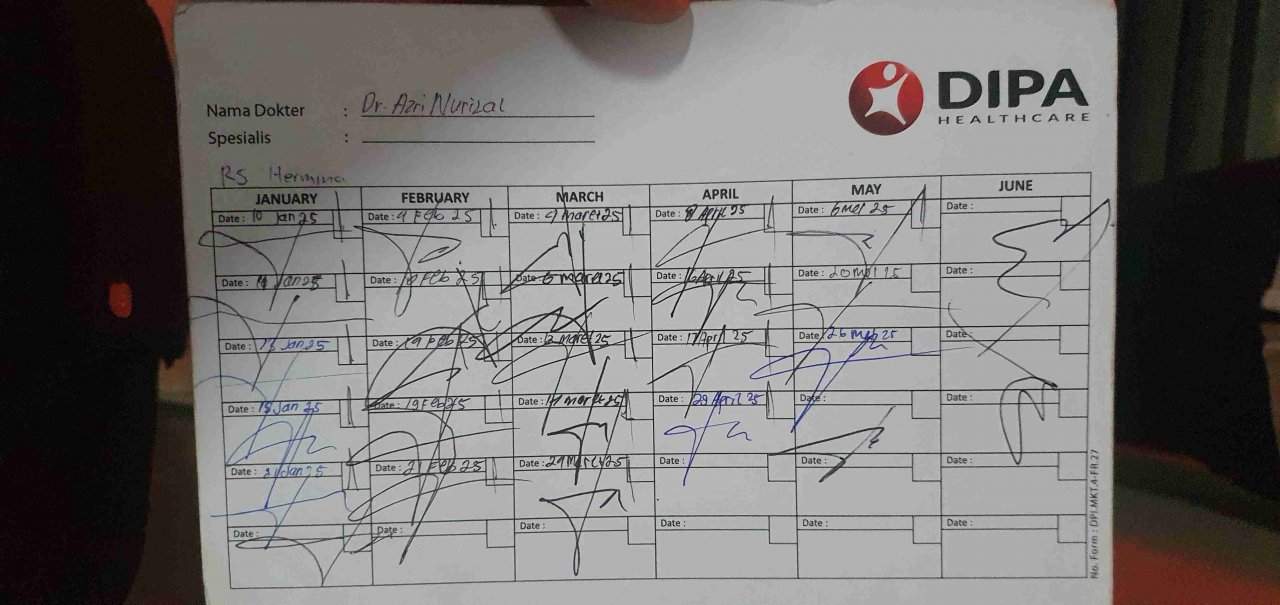 DIPA
HEALTHCARE
Nama Dokter : Dr. Azri Nurizal
Spesialis :
RS Hermina
JANUARY FEBRUARY MARCH APRIL MAY JUNE
Date : 10 Jan 25 Date : 4 Feb 25 Date : 4 Maret 25 Date : 8 April 25 Date : 6 Mei 25 Date :
Date : Jan 25 Date : Feb 25 Date : Maret 25 Date : April 25 Date : 20 Mei 25 Date :
Date : Jan 25 Date : 19 Feb 25 Date : Maret 25 Date : 17 April 25 Date : 26 Mei 25 Date :
Date : Jan 25 Date : 19 Feb 25 Date : Maret 25 Date : 29 April 25 Date : Date :
Date : Jan 25 Date : 21 Feb 25 Date : Maret 25 Date : Date : Date :
Date : Date : Date : Date : Date : Date :
No. Form : DPI.MKT.A-FR.27